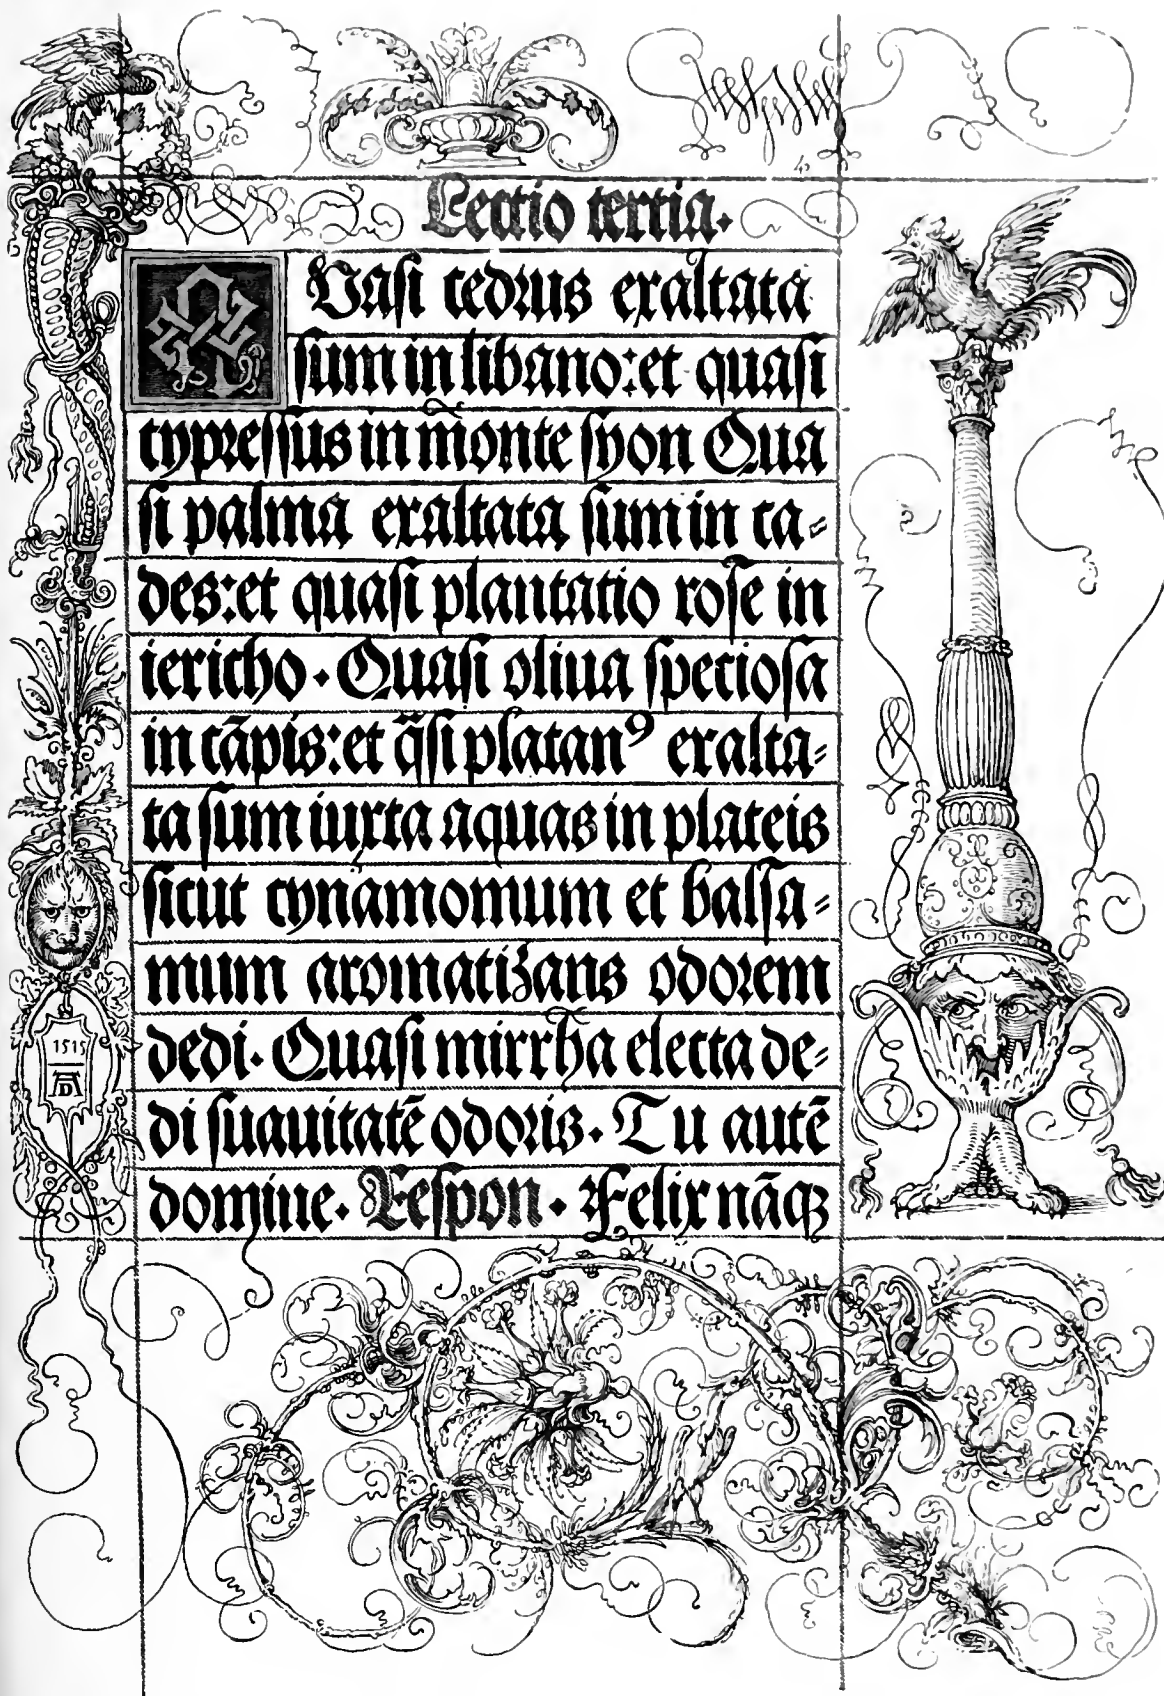 Lectio tertia.
QUasi cedrus exaltata
sum in libano: et quasi
cypressus in monte syon Qua
si palma exaltata sum in ca=
des: et quasi plantatio rose in
iericho. Quasi oliua speciosa
in cãpis: et q̃si platanꝰ exalta=
ta sum iuxta aquas in plateis
sicut cynamomum et balsa=
mum aromatizans odorem
dedi. Quasi mirrha electa de=
di suauitatẽ odoris. Tu autẽ
domine. Respon. Felix nãqꝫ
1515
AD